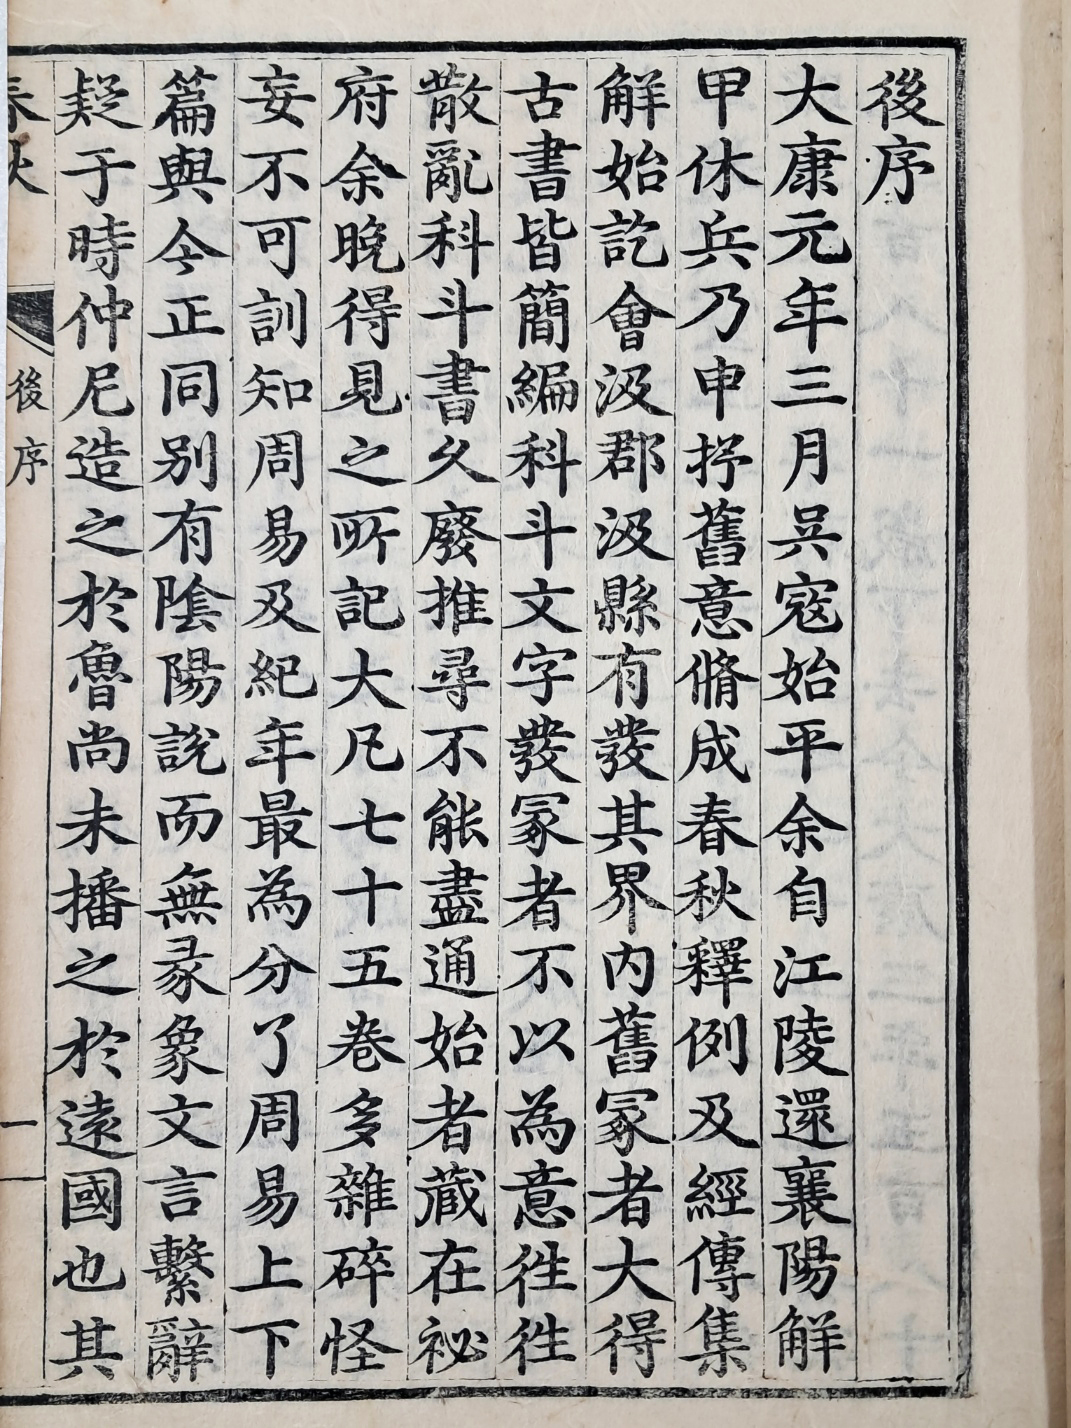 後序
大康元年三月吳寇始平余自江陵還襄陽解
甲休兵乃申抒舊意脩成春秋釋例及經傳集
解始訖會汲郡汲縣有發其界内舊冢者大得
古書皆簡編科斗文字發冢者不以為意徃徃
散亂科斗書久廢推尋不能盡通始者藏在祕
府余晚得見之所記大凡七十五卷多雜碎怪
妄不可訓知周易及紀年最為分了周易上下
篇與今正同别有陰陽說而無彖象文言繫辭
疑于時仲尼造之於魯尚未播之於逺國也其
春秋 後序 一